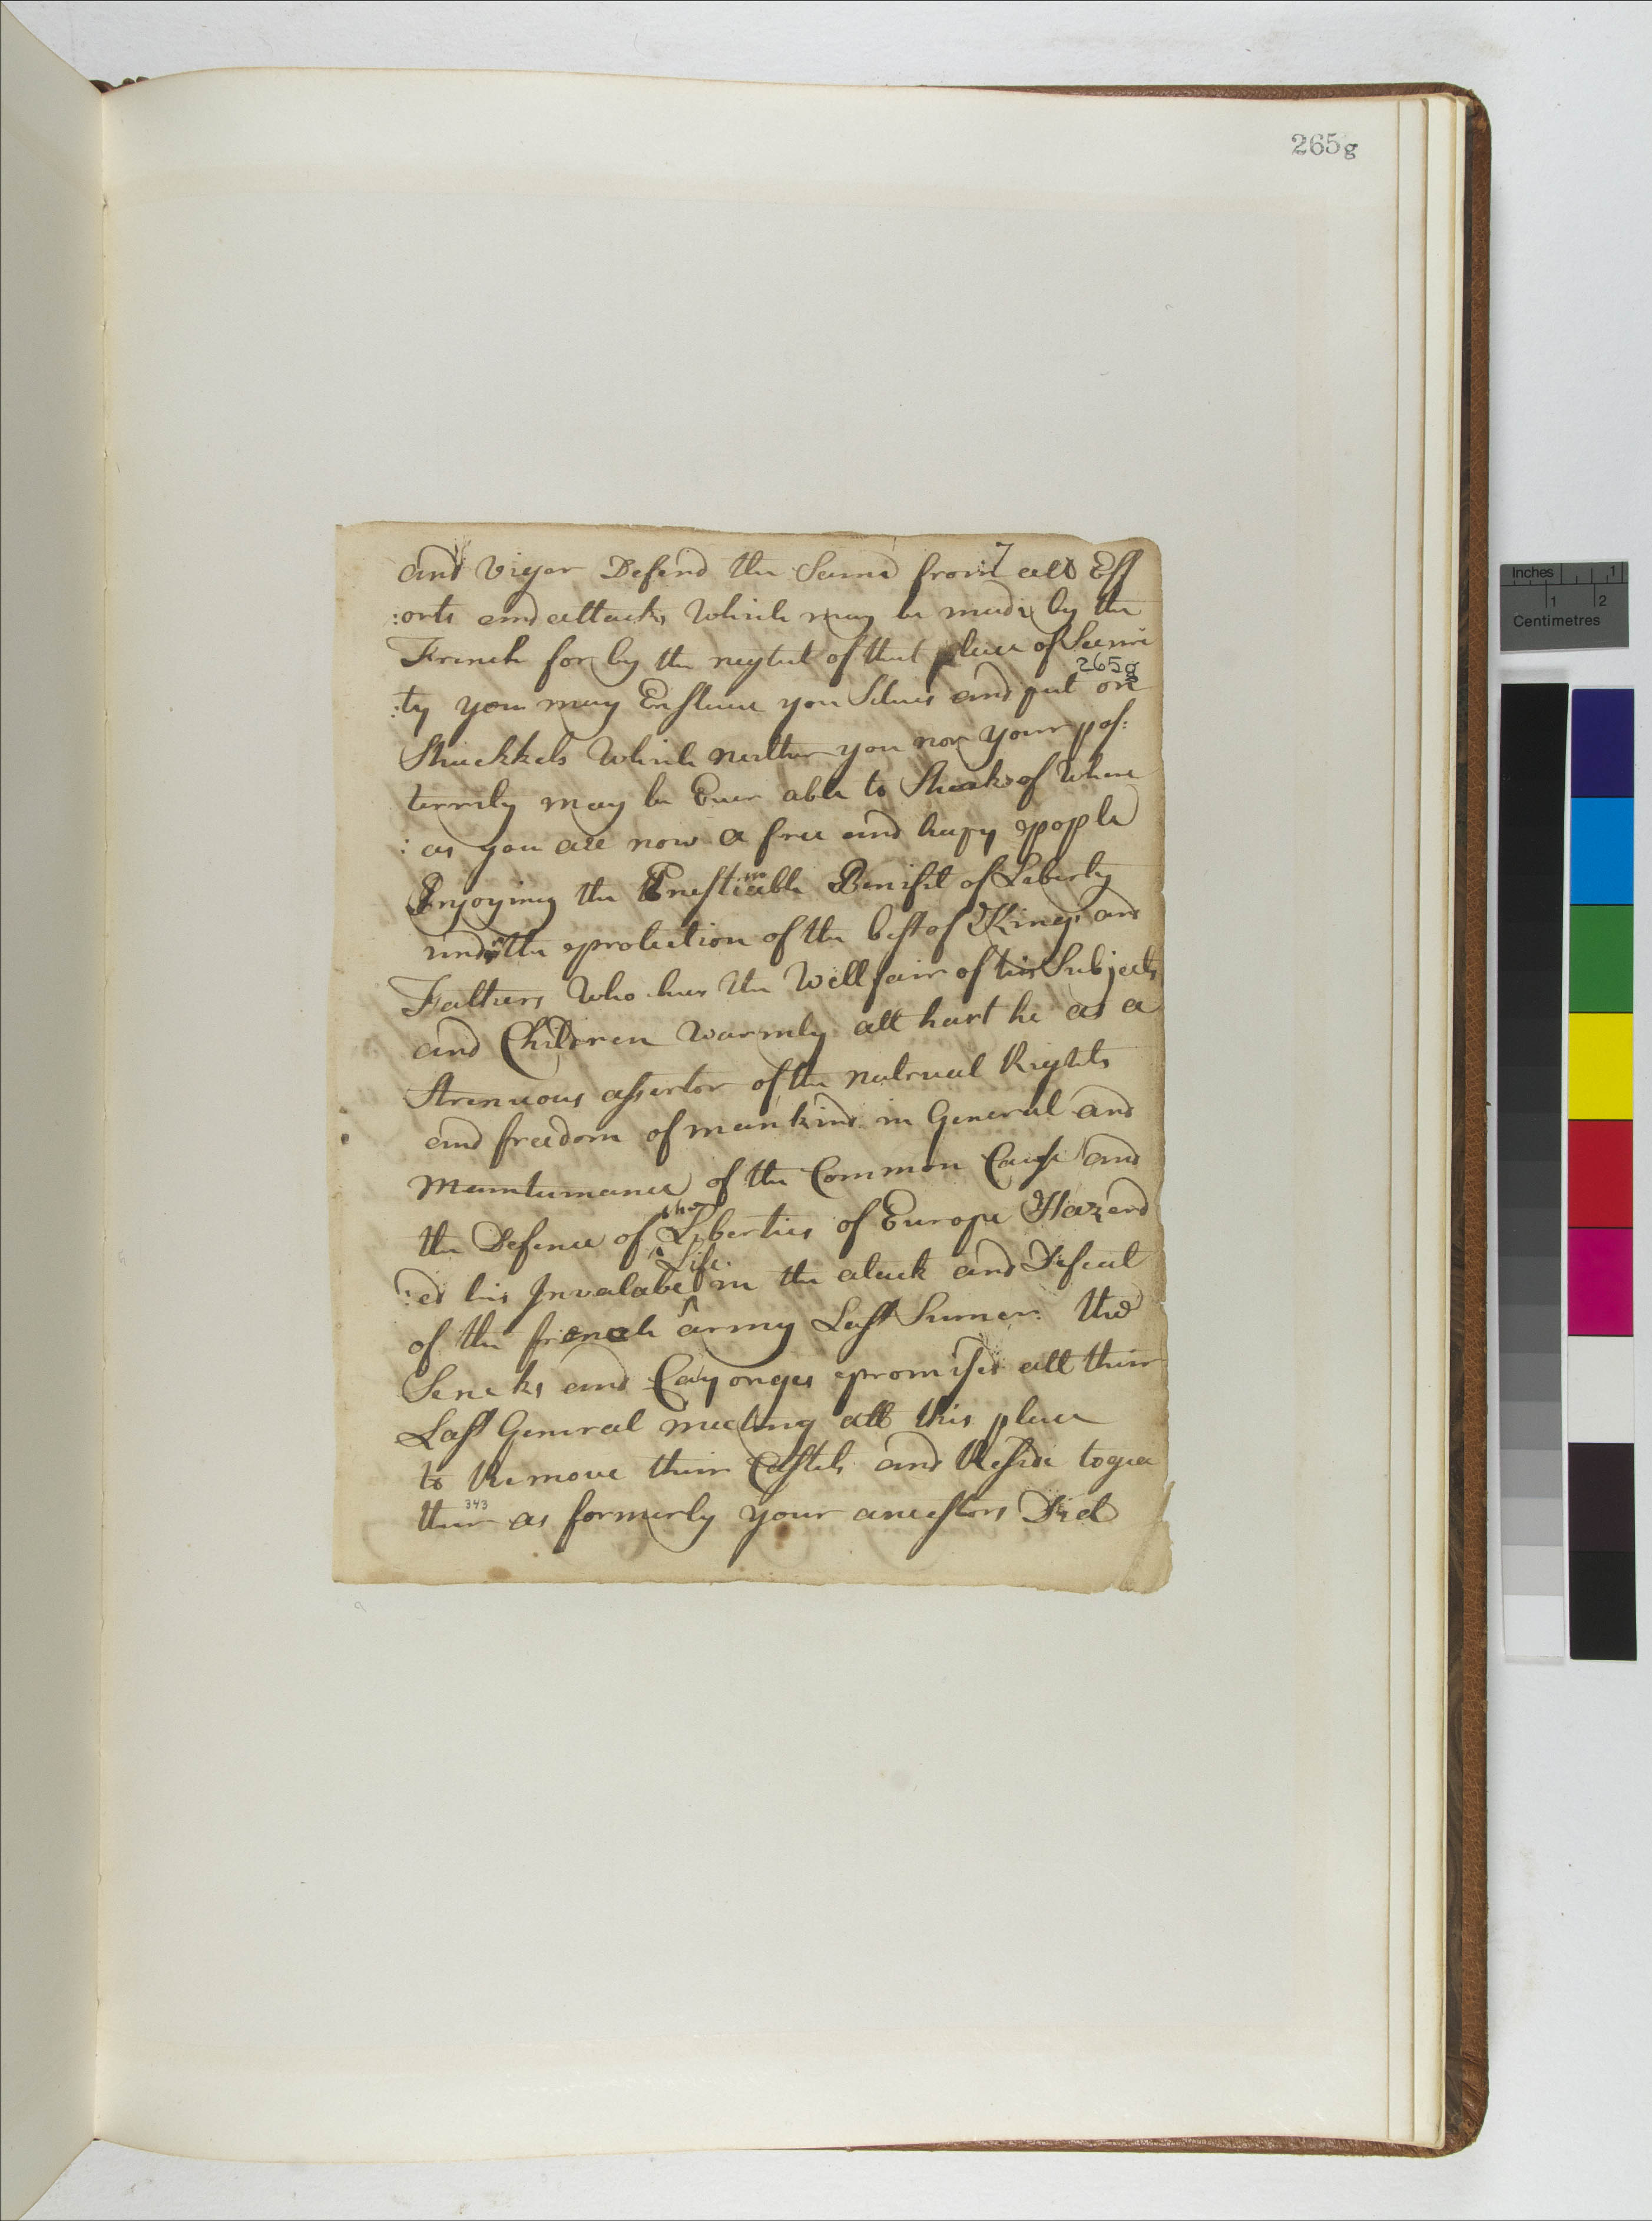 265g
7
and Vigor Defend the Same from all Eff
:orts and attacks Which may be made by the
French for by the neglect of that place of Securi
265g
:ty you may Enslave you Selves and put on
Shackkels Which neither you nor your pos:
territy may be Ever able to Shake of Where
: as you are now a free and hapy people
Enjoying the Enestimable Benifit of Liberty
under the protection of the best of Kings and
Fathers Who has the Wellfair of his Subjects
and Children Warmly att hart he as a
Strenuous assertor of the natrual Rights
and freedom of mankind in General and
Maintainance of the Common Cause and
the Defence of the Liberties of Europe Hazerd
:ed his Invalabe Life in the atack and Defeat
of the french army Last Sumer. the
Seneks and Cayonges promised att their
Last General meeting att this place
to Remove their Castels and Reside togea
ther as formerly your ancestors Did
343